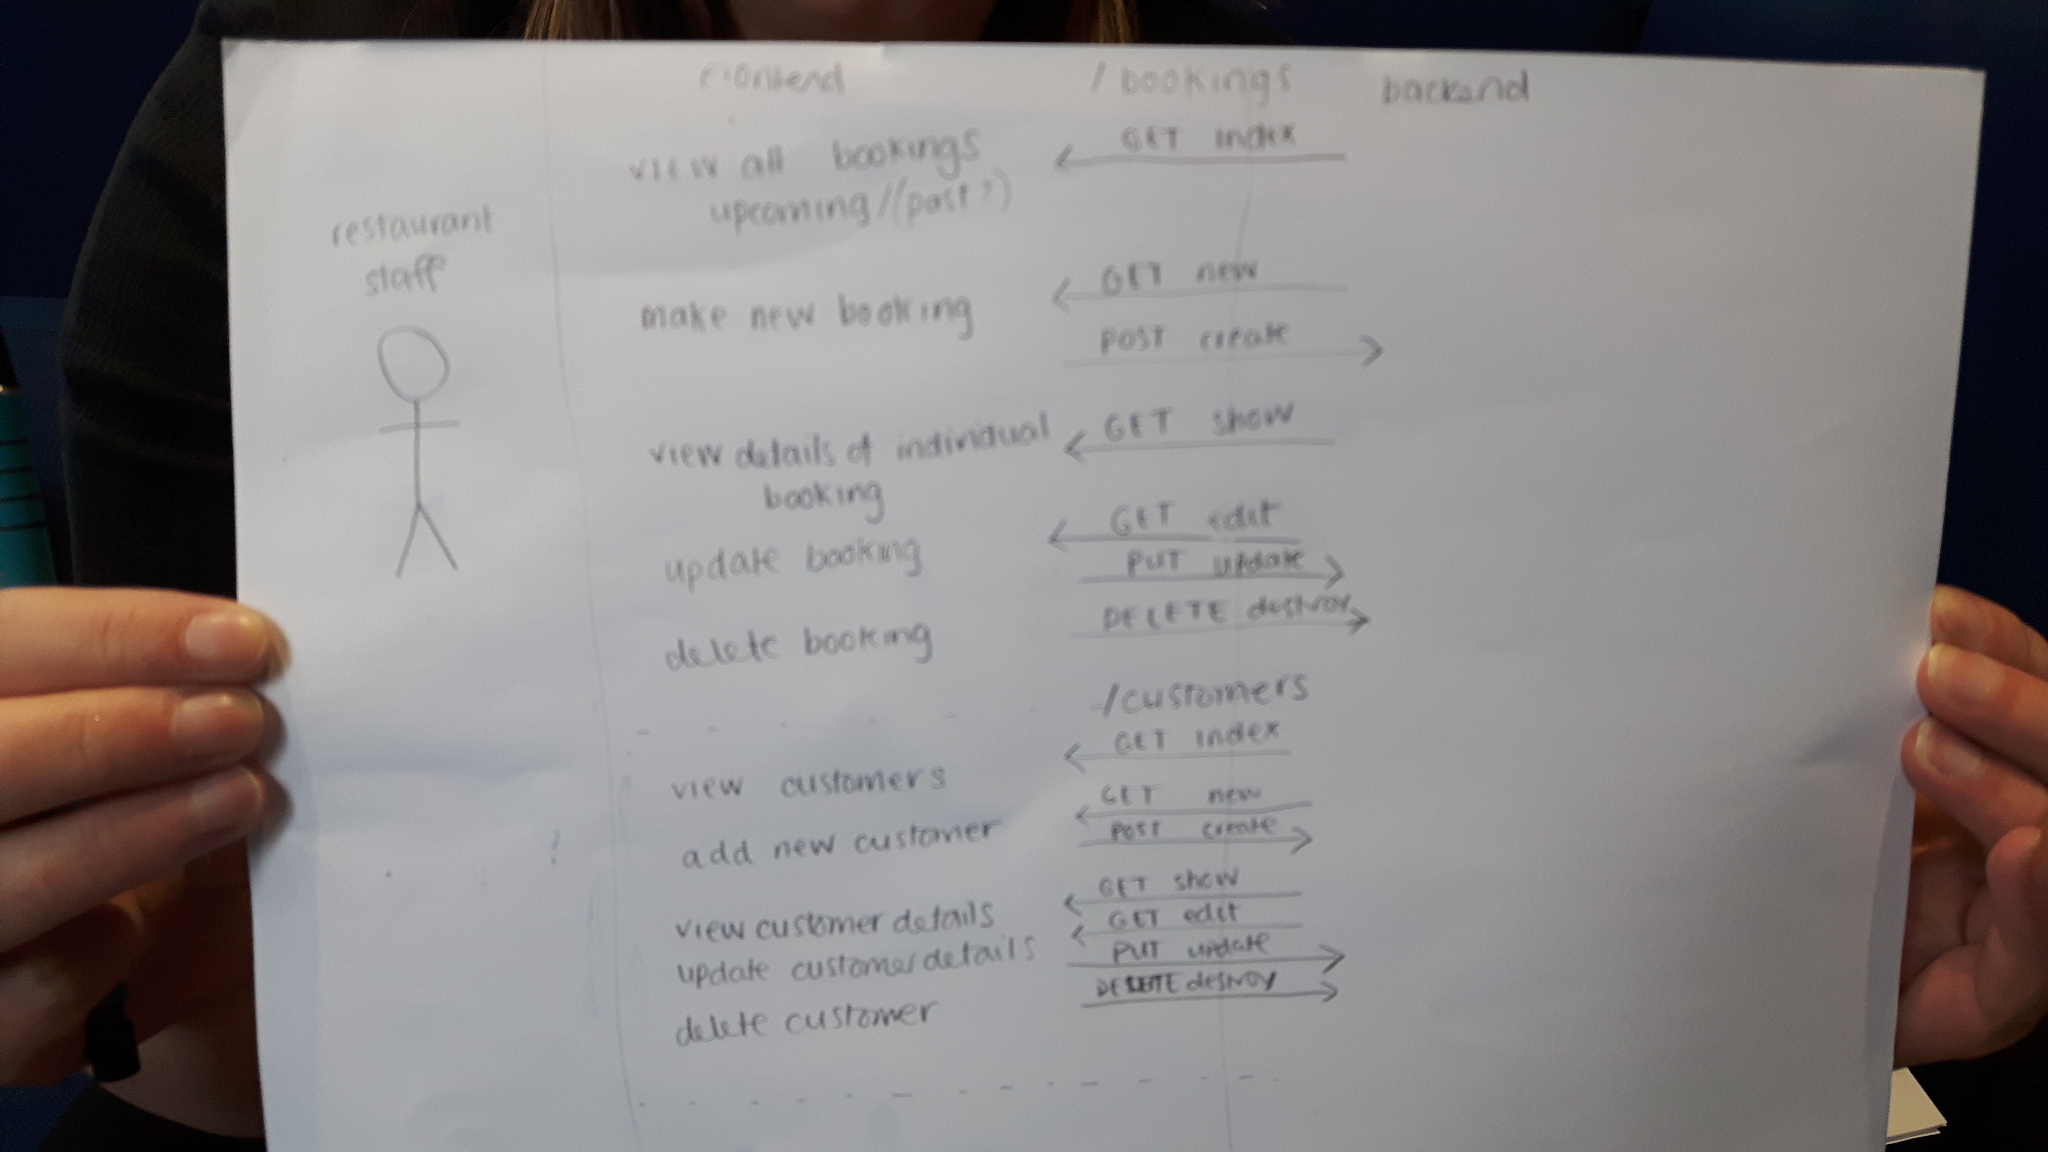 frontend /bookings backend
view all bookings GET index
upcoming/(past?)
restaurant
staff
make new booking GET new
POST create
view details of individual GET show
booking
update booking GET edit
PUT update
delete booking DELETE destroy
/customers
view customers GET index
add new customer GET new
POST create
view customer details GET show
update customer details GET edit
PUT update
delete customer DELETE destroy